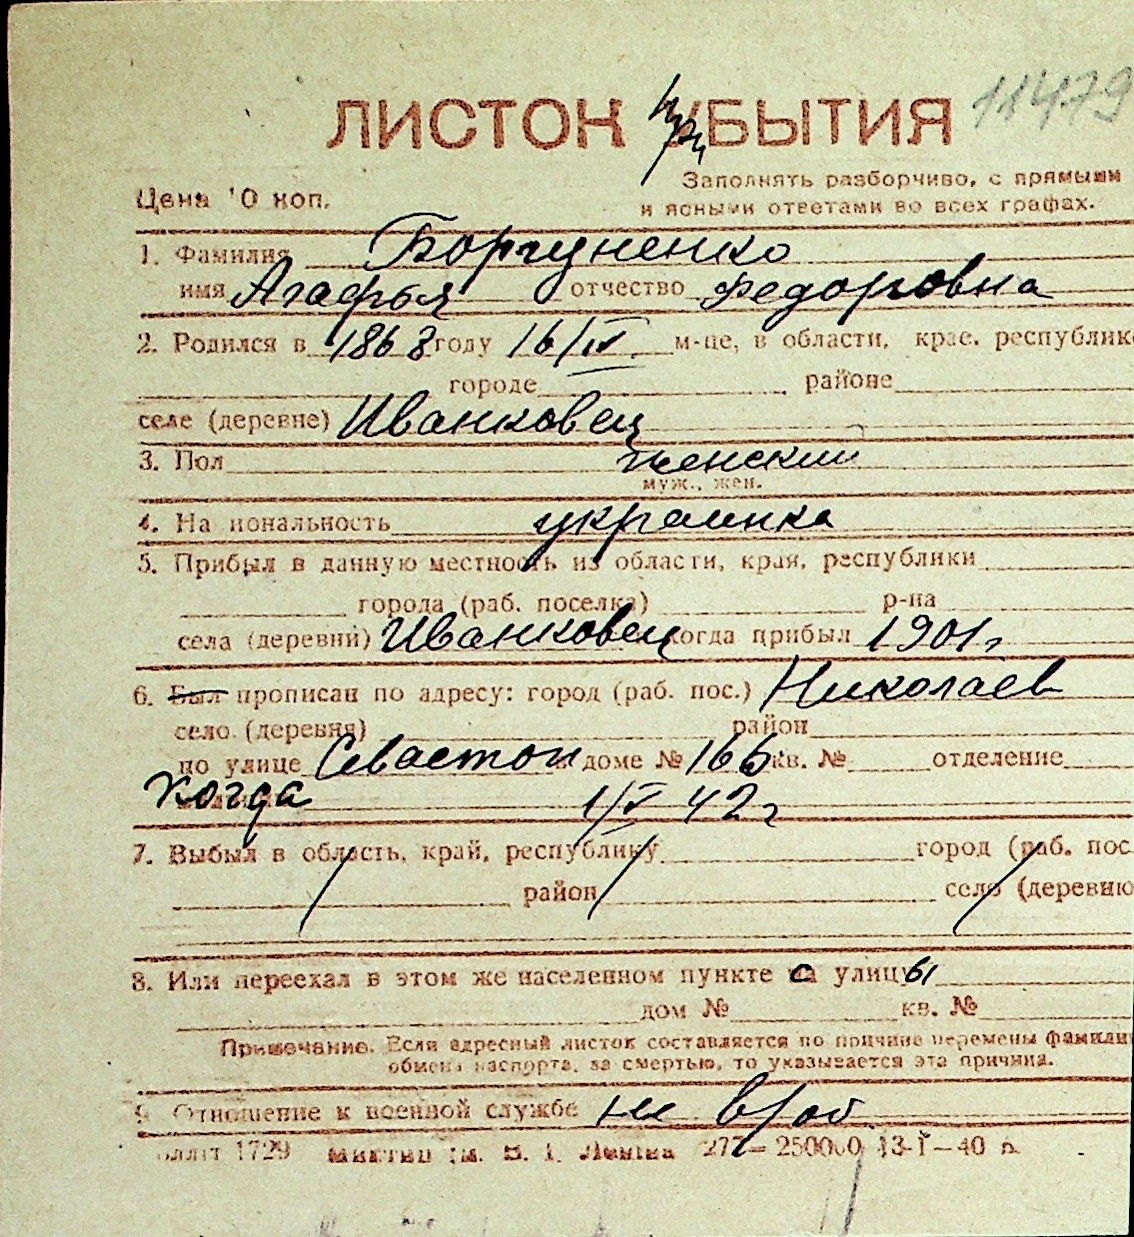 11479
ЛИСТОК При УБЫТИЯ
Цена 10 коп.
Заполнять разборчиво, с прямыми
и ясными ответами во всех графах.
1. Фамилия Боргуненко
имя Агафья отчество Федоровна
2. Родился в 1868 году 16/IV м-це, в области, крае, республике
городе районе
селе (деревне) Иванковец
3. Пол женский
муж., жен.
4. Национальность украинка
5. Прибыл в данную местность из области, края, республики
города (раб. поселка) р-на
села (деревни) Иванковец когда прибыл 1901 г
6. Был прописан по адресу: город (раб. пос.) Николаев
село (деревня) район
по улице Севастоп доме № 166 кв. № отделение
Когда 1/V 42 г
7. Выбыл в область, край, республику город (раб. пос.
район село (деревню
8. Или переехал в этом же населенном пункте с улицы
дом № кв. №
Примечание. Если адресный листок составляется по причине перемены фамилии
обмена паспорта, за смертью, то указывается эта причина.
9. Отношение к военной службе не в/об
1729 им. В. І. Леніна 277—250000 13-I—40 р.